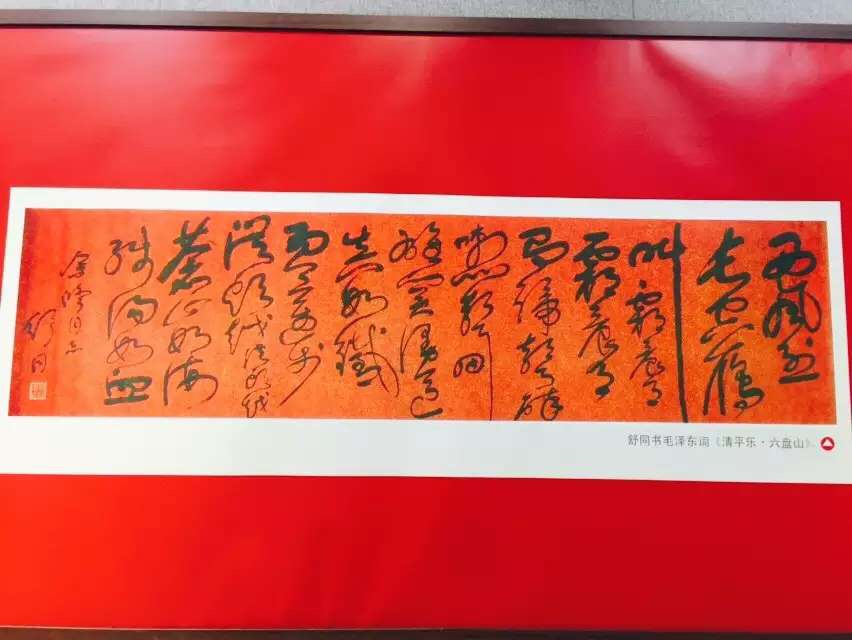 西风烈
长空雁
叫霜晨月
霜晨月
马蹄声碎
喇叭声咽
雄关漫道
真如铁
而今迈步
从头越从头越
苍山如海
残阳如血
同志
舒同
舒同书毛泽东词《清平乐·六盘山》